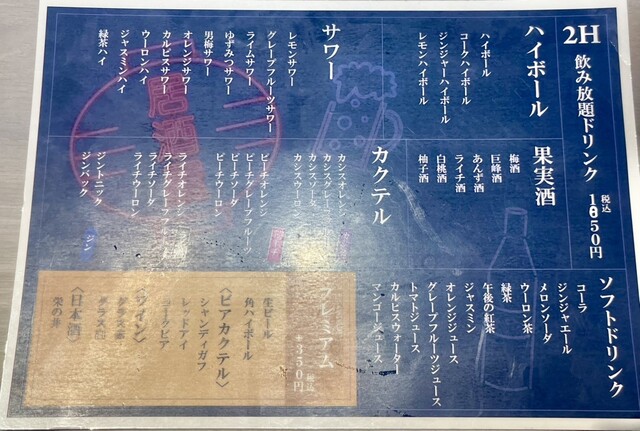 2H
飲み放題ドリンク
税込
1650円
ハイボール
ハイボール
コークハイボール
ジンジャーハイボール
レモンハイボール
サワー
レモンサワー
グレープフルーツサワー
ライムサワー
ゆずみつサワー
男梅サワー
オレンジサワー
カルピスサワー
ウーロンハイ
ジャスミンハイ
緑茶ハイ
果実酒
梅酒
巨峰酒
あんず酒
ライチ酒
白桃酒
柚子酒
カクテル
カシスオレンジ
カシスグレープ
カシスソーダ
カシスウーロン
ピーチオレンジ
ピーチグレープフルーツ
ピーチソーダ
ピーチウーロン
ライチオレンジ
ライチグレープフルーツ
ライチソーダ
ライチウーロン
ジン
ジントニック
ジンバック
ソフトドリンク
コーラ
ジンジャエール
メロンソーダ
ウーロン茶
緑茶
午後の紅茶
ジャスミン
オレンジジュース
グレープフルーツジュース
トマトジュース
カルピスウォーター
マンゴージュース
プレミアム
税込
+350円
生ビール
角ハイボール
〈ビアカクテル〉
シャンディガフ
レッドアイ
コークビア
〈ワイン〉
グラス赤
グラス白
〈日本酒〉
栄の井
居酒屋